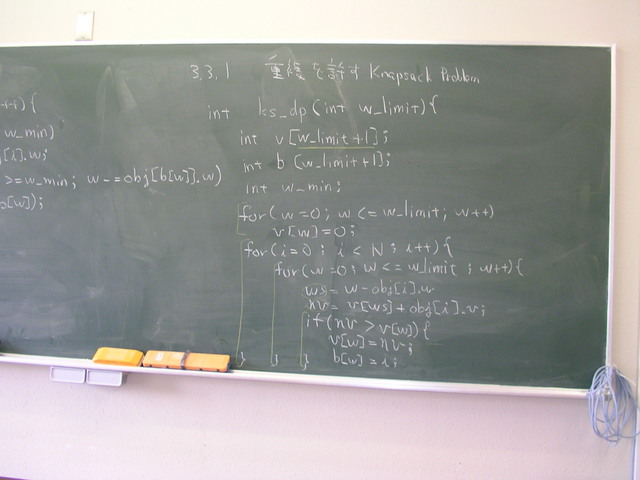 ++) {
w_min)
[i].w;
>=w_min; w-=obj[b[w]].w)
b[w]);
3.3.1 重複を許す Knapsack Problem
int ks_dp(int w_limit){
int v[w_limit+1];
int b[w_limit+1];
int w_min;
for(w=0; w<=w_limit; w++)
v[w]=0;
for(i=0; i<N; i++){
for(w=0; w<=w_limit; w++){
ws= w-obj[i].w
nv= v[ws]+obj[i].v;
if(nv>v[w]){
v[w]=nv;
} } } b[w]=i;